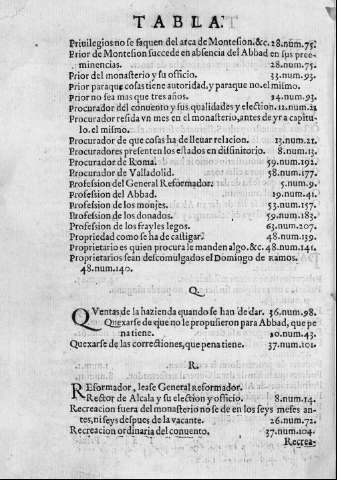 TABLA.
Priuilegios no se saquen del arca de Montesion.&c. 28.num.75.
Prior de Montesion succede en absencia del Abbad en sus pree-
minencias. 28.num.75.
Prior del monasterio y su officio. 33.num.93.
Prior paraque cosas tiene autoridad, y paraque no.el mismo.
Prior no sea mas que tres años. 14.num.93.
Procurador del conuento y sus qualidades y election. 11.num.21
Procurador resida vn mes en el monasterio, antes de yr a capitu-
lo.el mismo.
Procurador de que cosas ha de lleuar relacion. 13.num.21.
Procuradores presenten los estados en diffinitorio. 8.num.13.
Procurador de Roma. 59.num.192.
Procurador de Valladolid. 58.num.177.
Profession del General Reformador. 5.num.9.
Profession del Abbad. 19.num.41.
Profession de los monjes. 53.num.157.
Profession de los donados. 59.num.183.
Profession de los frayles legos. 63.num.207.
Propriedad como se ha de castigar. 48.num.139.
Proprietario es quien procura le manden algo.&c. 48.num.141.
Proprietarios sean descomulgados el Domingo de Ramos.
48.num.140.
Q.
QVentas de la hazienda quando se han de dar. 36.num.98.
Quexarse de que no le propusieron para Abbad, que pe
na tiene. 20.num.43.
Quexarse de las correctiones, que pena tiene. 37.num.101.
R.
REformador, lease General Reformador.
Rector de Alcala y su election y officio. 8.num.14.
Recreacion fuera del monasterio no se de en los seys meses an-
tes, ni seys despues de la vacante. 26.num.72.
Recreacion ordinaria del conuento. 37.num.104.
Recrea-